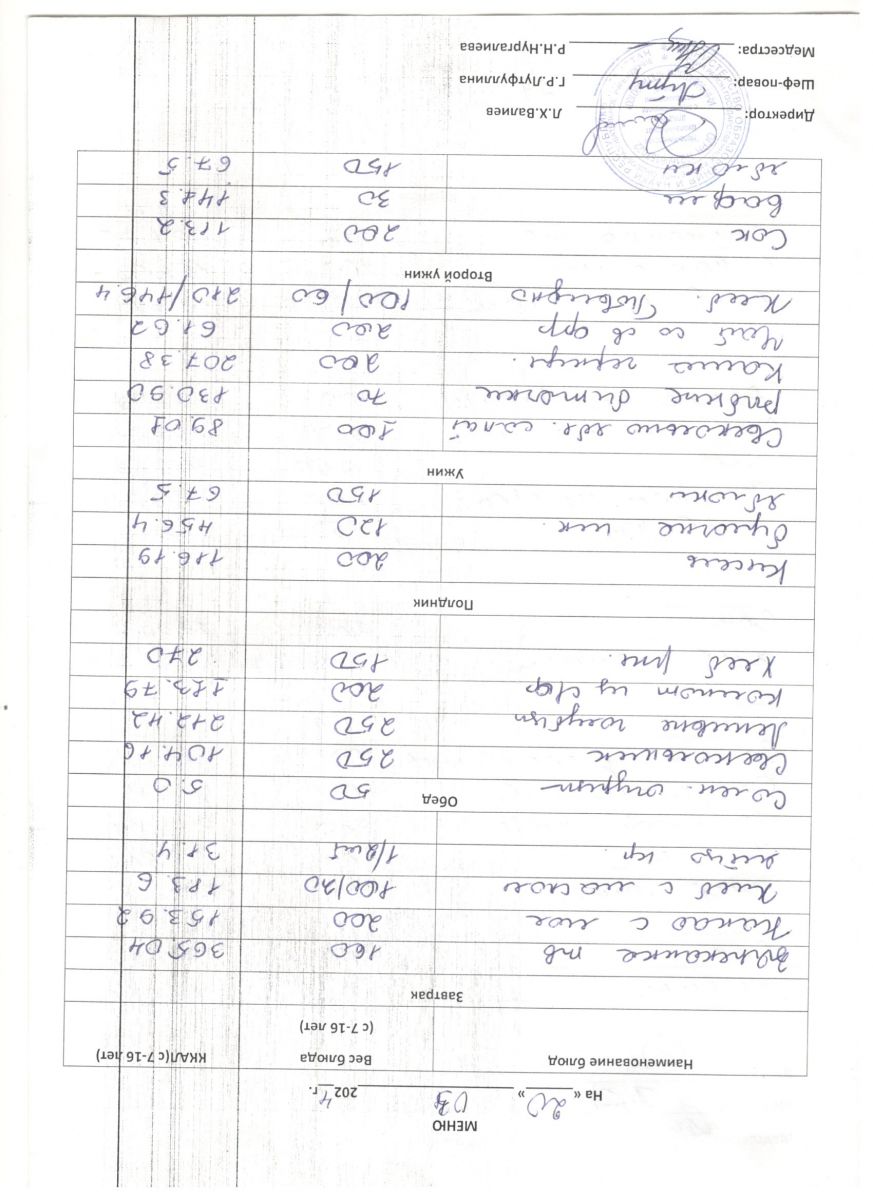 МЕНЮ
На « 20 » 03 2024 г.
Наименование блюд Вес блюда (с 7-16 лет) ККАЛ(с 7-16 лет)
Завтрак
запеканка тв 160 365.04
Какао с мол 200 153.92
Хлеб с маслом 100/20 183.6
яйцо кур. 1/2шт 31.4
Обед
Солен. огурцы 50 5.0
Свекольник 250 104.16
Ленивые голубцы 250 212.42
компот из сф 200 113.79
Хлеб рж. 150 270
Полдник
Кисель 200 116.19
булочка 120 456.4
яблоки 150 67.5
Ужин
Свекольно яб. салат 100 89.01
рыбные биточки 70 130.90
Каша 200 207.38
Чай со св фр 200 61.62
Хлеб. Повидло 100/60 210/146.4
Второй ужин
Сок 200 113.2
Вафли 30 141.3
яблоки 150 67.5
Директор: Л.Х.Валиев
Шеф-повар: Г.Р.Лутфуллина
Медсестра: Р.Н.Нургалиева